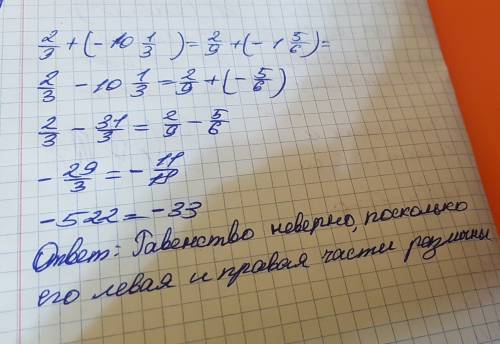 2/3 + (- 10 1/3) = 2/9 + (- 1 5/6) =
2/3 - 10 1/3 = 2/9 + (- 5/6)
2/3 - 31/3 = 2/9 - 5/6
- 29/3 = - 11/18
- 522 = - 33
Ответ: Равенство неверно, поскольку
его левая и правая части разманы